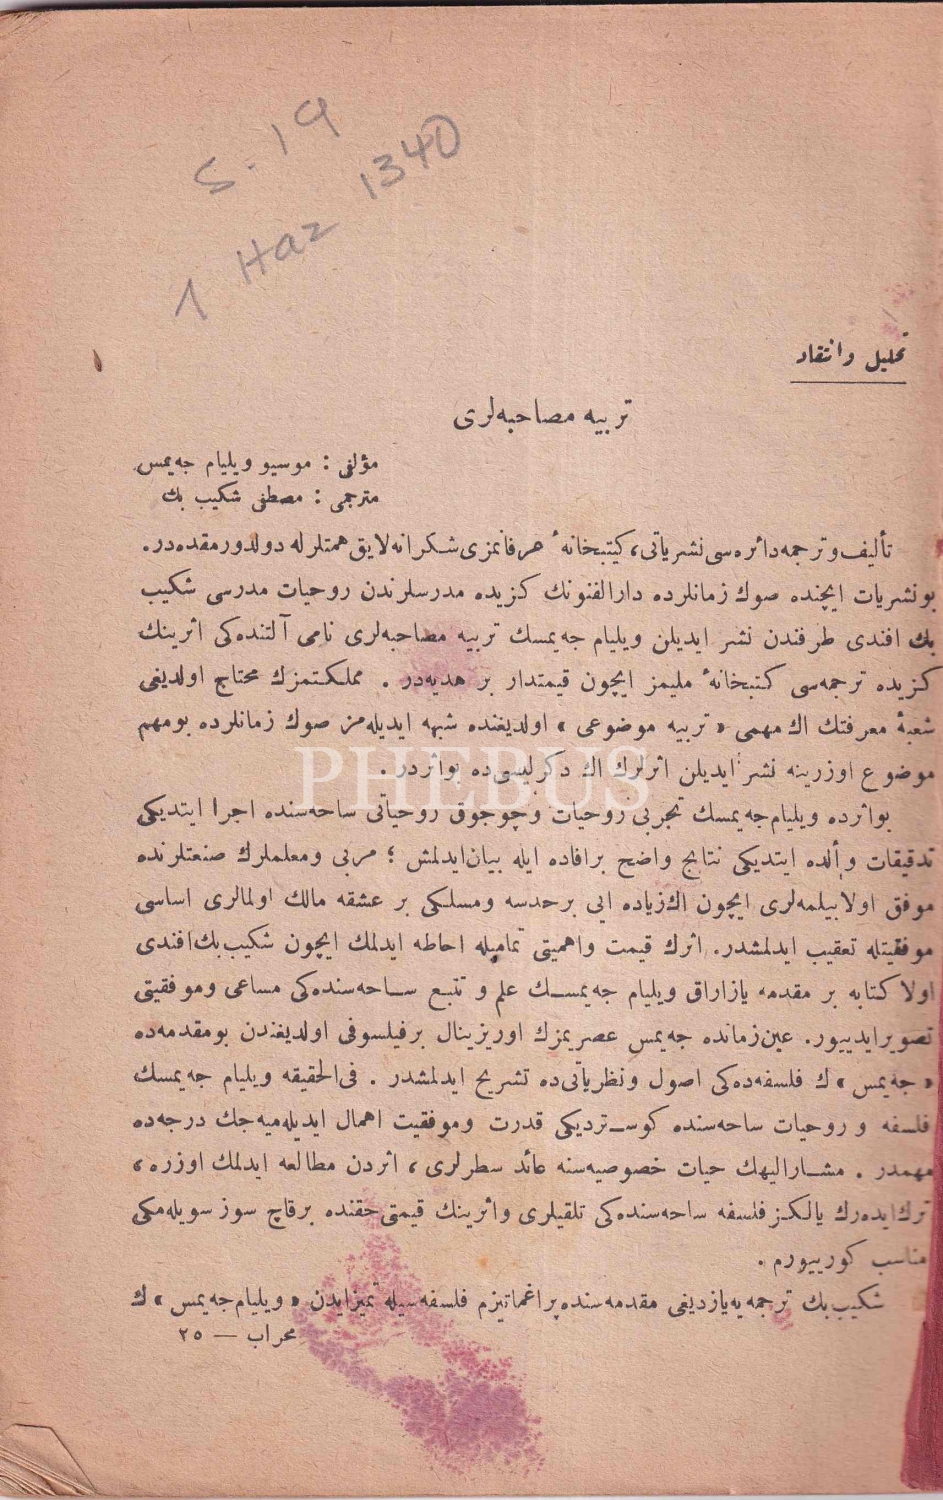 S. 19
1 Haz 1340
تحليل و انتقاد
تربيه مصاحبه‌لرى
مؤلفى : موسيو ويليام جه‌يمس
مترجمى : مصطفى شكيب بك
تأليف و ترجمه دائره‌سى نشرياتى، كيتبخانهٔ عرفانمزى شكرانه لايق همتلرله دولدورمقده‌در.
بو نشريات ايچنده صوك زمانلرده دارالفنونك كزيده مدرسلرندن روحيات مدرسى شكيب
بك افندى طرفندن نشر ايديلن ويليام جه‌يمسك تربيه مصاحبه‌لرى نامى آلتنده‌كى اثرينك
كزيده ترجمه‌سى كتبخانهٔ مليمز ايچون قيمتدار بر هديه‌در . مملكتمزك محتاج اولديغى
شعبهٔ معرفتك اك مهمى « تربيه موضوعى » اولديغنده شبهه ايديله‌مز صوك زمانلرده بو مهم
موضوع اوزرينه نشر ايديلن اثرلرك اك دكرليسى‌ده بو اثردر .
PHEBUS
بو اثرده ويليام جه‌يمسك تجربى روحيات و چوجوق روحياتى ساحه‌سنده اجرا ايتديكى
تدقيقات و ألده ايتديكى نتايج واضح بر افاده ايله بيان ايدلمش ؛ مربى و معلملرك صنعتلرنده
موفق اولابيلمه‌لرى ايچون اك زياده ايى بر حدسه و مسلكى بر عشقه مالك اولمالرى اساسى
موفقيتله تعقيب ايدلمشدر. اثرك قيمت و اهميتى تماميله احاطه ايدلمك ايچون شكيب بك افندى
اولا كتابه بر مقدمه يازاراق ويليام جه‌يمسك علم و تتبع ساحه‌سنده‌كى مساعى و موفقيتى
تصوير ايدييور. عين زمانده جه‌يمس عصريمزك اوريزينال بر فيلسوفى اولديغندن بو مقدمه‌ده
« جه‌يمس » ك فلسفه‌ده‌كى اصول و نظرياتى‌ده تشريح ايدلمشدر . فى الحقيقه ويليام جه‌يمسك
فلسفه و روحيات ساحه‌سنده كوستردیكى قدرت و موفقيت اهمال ايديله‌ميه‌جك درجه‌ده
مهمدر . مشاراليهك حيات خصوصيه‌سنه عائد سطرلرى ، اثردن مطالعه ايدلمك اوزره ،
ترك ايده‌رك يالكز فلسفه ساحه‌سنده‌كى تلقيلرى و اثرينك قيمتى حقنده بر قاچ سوز سويله‌مكى
مناسب كورييورم .
شكيب بك ترجمه‌يه يازديغى مقدمه‌سنده پراغماتيزم فلسفه‌سيله تميز ايدن « ويليام جه‌يمس » ك
محراب — ٢٥